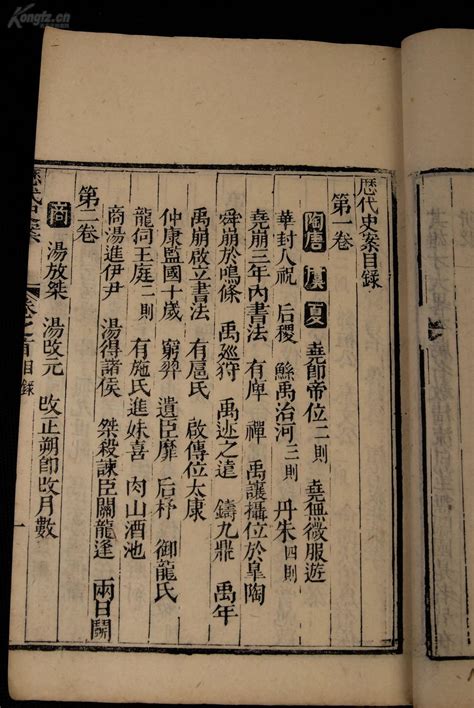 歷代史案目錄
第一卷
陶唐 虞 夏 堯卽帝位二則 堯無微服遊
華封人祝 后稷 鯀禹治河三則 丹朱四則
堯崩三年內書法 有庳 禪 禹讓攝位於臯陶
舜崩於鳴條 禹廵狩 禹迹之遠 鑄九鼎 禹年
禹崩啟立書法 有扈氏 啟傳位太康
仲康監國十歲 窮羿 遺臣靡 后杼 御龍氏
龍伺王庭二則 有施氏進妹喜 肉山酒池
商湯進伊尹 湯得諸侯 桀殺諫臣關龍逢 兩日鬭
第二卷
商 湯放桀 湯改元 改正朔卽改月數
歷代史案 卷之首目錄 一
Kongfz.cn